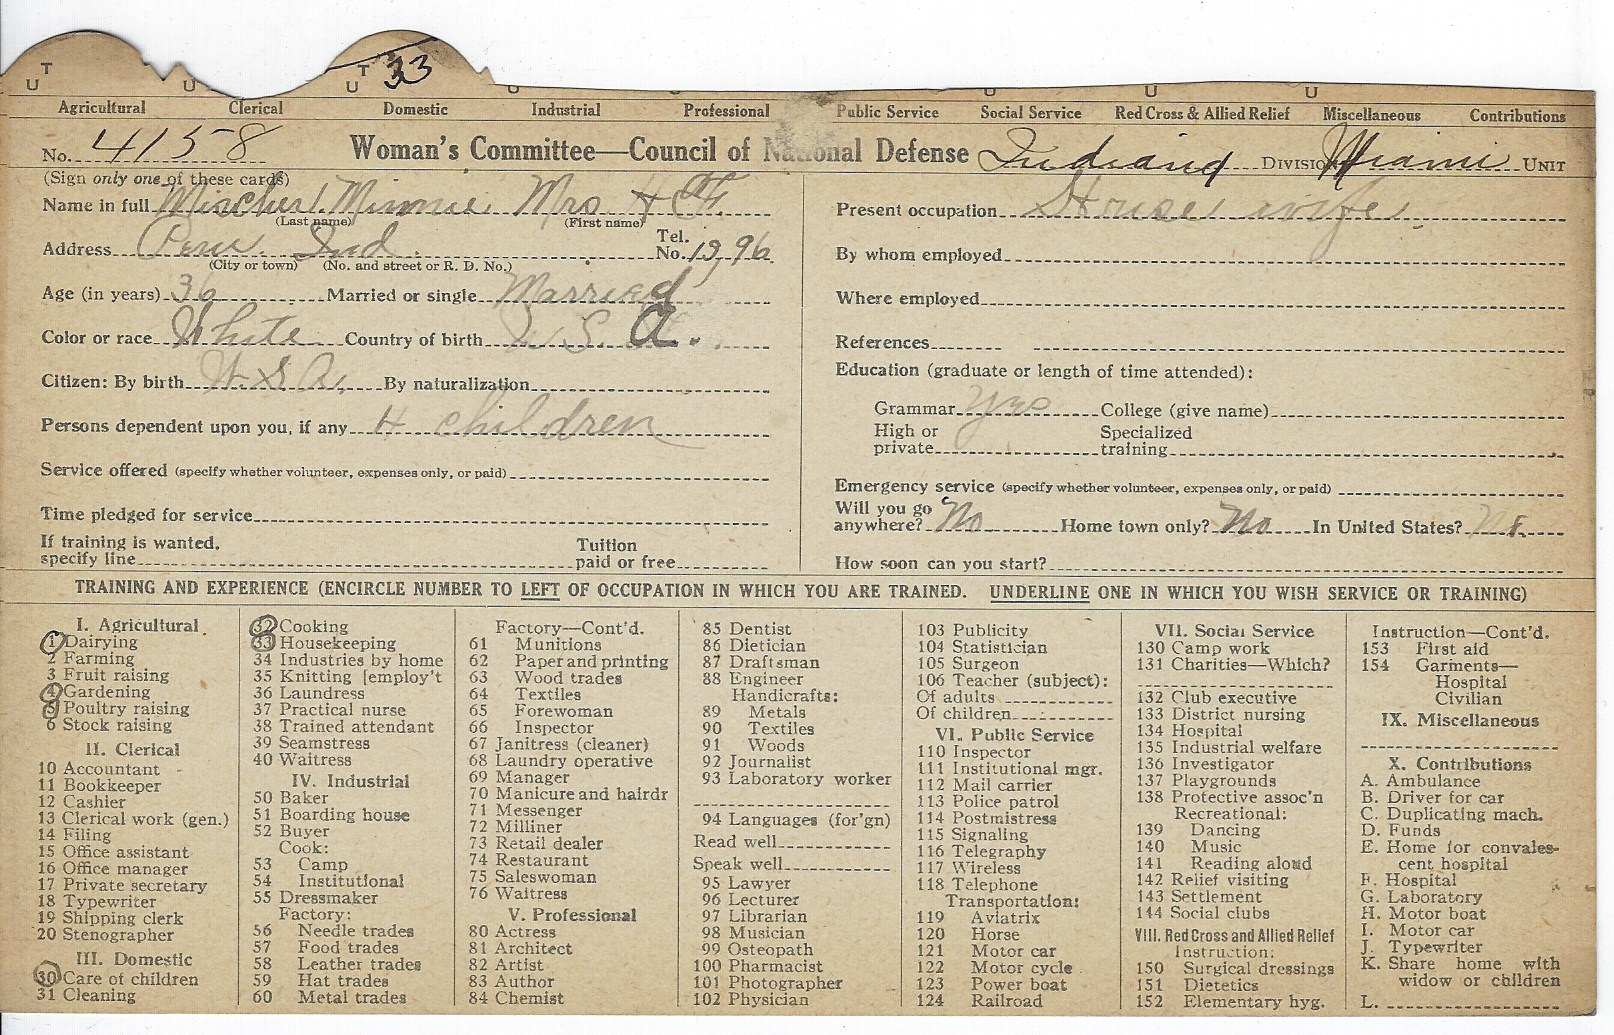 T T 33
U U U U U U U
Agricultural Clerical Domestic Industrial Professional Public Service Social Service Red Cross & Allied Relief Miscellaneous Contributions
No. 4158 Woman's Committee—Council of National Defense Indiana DIVISION Miami UNIT
(Sign only one of these cards)
Name in full Mischer Minnie Mrs H F.
(Last name) (First name)
Address Peru Ind. Tel. No. 1996
(City or town) (No. and street or R. D. No.)
Age (in years) 36 Married or single Married
Color or race White Country of birth U.S. A.
Citizen: By birth U.S.A. By naturalization
Persons dependent upon you, if any 4 children
Service offered (specify whether volunteer, expenses only, or paid)
Time pledged for service
If training is wanted, specify line Tuition paid or free
Present occupation House wife
By whom employed
Where employed
References
Education (graduate or length of time attended):
Grammar yes College (give name)
High or private Specialized training
Emergency service (specify whether volunteer, expenses only, or paid)
Will you go anywhere? No Home town only? No In United States?
How soon can you start?
TRAINING AND EXPERIENCE (ENCIRCLE NUMBER TO LEFT OF OCCUPATION IN WHICH YOU ARE TRAINED. UNDERLINE ONE IN WHICH YOU WISH SERVICE OR TRAINING)
I. Agricultural
1 Dairying
2 Farming
3 Fruit raising
4 Gardening
5 Poultry raising
6 Stock raising
II. Clerical
10 Accountant
11 Bookkeeper
12 Cashier
13 Clerical work (gen.)
14 Filing
15 Office assistant
16 Office manager
17 Private secretary
18 Typewriter
19 Shipping clerk
20 Stenographer
III. Domestic
30 Care of children
31 Cleaning
32 Cooking
33 Housekeeping
34 Industries by home
35 Knitting [employ't
36 Laundress
37 Practical nurse
38 Trained attendant
39 Seamstress
40 Waitress
IV. Industrial
50 Baker
51 Boarding house
52 Buyer
Cook:
53 Camp
54 Institutional
55 Dressmaker
Factory:
56 Needle trades
57 Food trades
58 Leather trades
59 Hat trades
60 Metal trades
Factory—Cont'd.
61 Munitions
62 Paper and printing
63 Wood trades
64 Textiles
65 Forewoman
66 Inspector
67 Janitress (cleaner)
68 Laundry operative
69 Manager
70 Manicure and hairdr
71 Messenger
72 Milliner
73 Retail dealer
74 Restaurant
75 Saleswoman
76 Waitress
V. Professional
80 Actress
81 Architect
82 Artist
83 Author
84 Chemist
85 Dentist
86 Dietician
87 Draftsman
88 Engineer
Handicrafts:
89 Metals
90 Textiles
91 Woods
92 Journalist
93 Laboratory worker
94 Languages (for'gn)
Read well
Speak well
95 Lawyer
96 Lecturer
97 Librarian
98 Musician
99 Osteopath
100 Pharmacist
101 Photographer
102 Physician
103 Publicity
104 Statistician
105 Surgeon
106 Teacher (subject):
Of adults
Of children
VI. Public Service
110 Inspector
111 Institutional mgr.
112 Mail carrier
113 Police patrol
114 Postmistress
115 Signaling
116 Telegraphy
117 Wireless
118 Telephone
Transportation:
119 Aviatrix
120 Horse
121 Motor car
122 Motor cycle
123 Power boat
124 Railroad
VII. Social Service
130 Camp work
131 Charities—Which?
132 Club executive
133 District nursing
134 Hospital
135 Industrial welfare
136 Investigator
137 Playgrounds
138 Protective assoc'n
Recreational:
139 Dancing
140 Music
141 Reading aloud
142 Relief visiting
143 Settlement
144 Social clubs
VIII. Red Cross and Allied Relief
Instruction:
150 Surgical dressings
151 Dietetics
152 Elementary hyg.
Instruction—Cont'd.
153 First aid
154 Garments—
Hospital
Civilian
IX. Miscellaneous
X. Contributions
A. Ambulance
B. Driver for car
C. Duplicating mach.
D. Funds
E. Home for convales-
cent hospital
F. Hospital
G. Laboratory
H. Motor boat
I. Motor car
J. Typewriter
K. Share home with
widow or children
L.